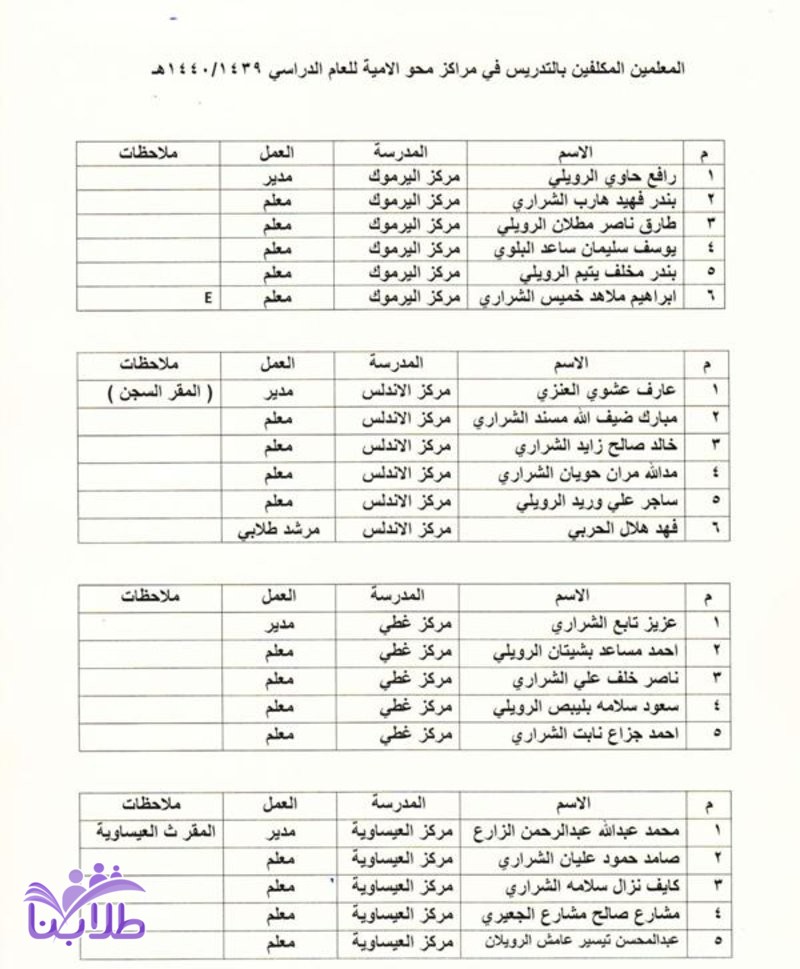 المعلمين المكلفين بالتدريس في مراكز محو الامية للعام الدراسي ١٤٤٠/١٤٣٩هـ
م الاسم المدرسة العمل ملاحظات
١ رافع حاوي الرويلي مركز اليرموك مدير
٢ بندر فهيد هارب الشراري مركز اليرموك معلم
٣ طارق ناصر مطلان الرويلي مركز اليرموك معلم
٤ يوسف سليمان ساعد البلوي مركز اليرموك معلم
٥ بندر مخلف يتيم الرويلي مركز اليرموك معلم
٦ ابراهيم ملاهد خميس الشراري مركز اليرموك معلم E
م الاسم المدرسة العمل ملاحظات
١ عارف عشوي العنزي مركز الاندلس مدير ( المقر السجن )
٢ مبارك ضيف الله مسند الشراري مركز الاندلس معلم
٣ خالد صالح زايد الشراري مركز الاندلس معلم
٤ مدالله مران حويان الشراري مركز الاندلس معلم
٥ ساجر علي وريد الرويلي مركز الاندلس معلم
٦ فهد هلال الحربي مركز الاندلس مرشد طلابي
م الاسم المدرسة العمل ملاحظات
١ عزيز تابع الشراري مركز غطي مدير
٢ احمد مساعد بشيتان الرويلي مركز غطي معلم
٣ ناصر خلف علي الشراري مركز غطي معلم
٤ سعود سلامه بليبص الرويلي مركز غطي معلم
٥ احمد جزاع نابت الشراري مركز غطي معلم
م الاسم المدرسة العمل ملاحظات
١ محمد عبدالله عبدالرحمن الزارع مركز العيساوية مدير المقر ث العيساوية
٢ صامد حمود عليان الشراري مركز العيساوية معلم
٣ كايف نزال سلامه الشراري مركز العيساوية معلم
٤ مشارع صالح مشارع الجعيري مركز العيساوية معلم
٥ عبدالمحسن تيسير عامش الرويلان مركز العيساوية معلم
طلابنا